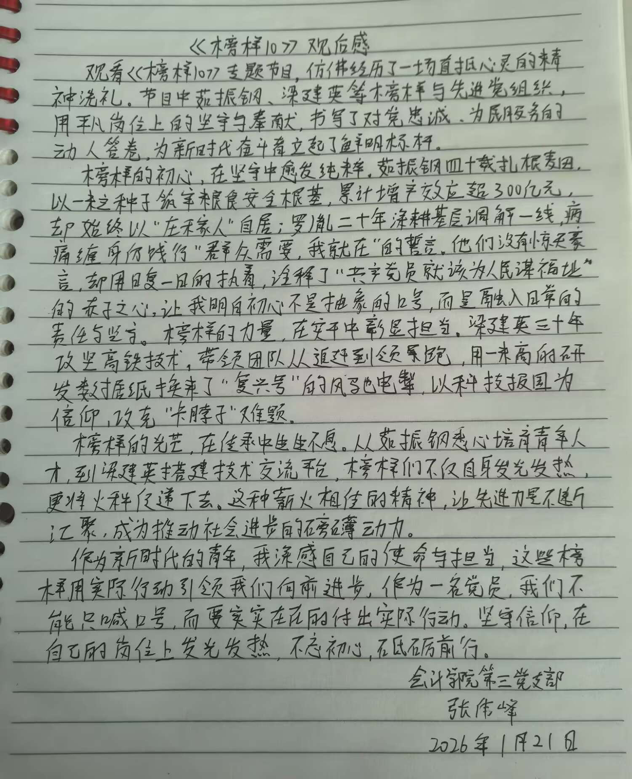 《榜样10》观后感
观看《榜样10》专题节目，仿佛经历了一场直抵心灵的精
神洗礼。节目中茹振钢、梁建英等榜样与先进党组织，
用平凡岗位上的坚守与奉献，书写了对党忠诚、为民服务的
动人答卷，为新时代奋斗者立起了鲜明标杆。
榜样的初心，在坚守中愈发纯粹。茹振钢四十载扎根麦田，
以一粒种子筑牢粮食安全根基，累计增产效应超300亿元，
却始终以“庄稼人”自居；罗胤二十年深耕基层调解一线，病
痛缠身仍践行“群众需要，我就在”的誓言。他们没有惊天豪
言，却用日复一日的执着，诠释了“共产党员就该为人民谋福祉”
的赤子之心。让我明白初心不是抽象的口号，而是融入日常的
责任与坚守。榜样的力量，在实干中彰显担当。梁建英三十年
攻坚高铁技术，带领团队从追赶到领跑，用一米高的研
发数据纸换来了“复兴号”的风驰电掣，以科技报国为
信仰，攻克“卡脖子”难题。
榜样的光芒，在传承中生生不息。从茹振钢悉心培育青年人
才，到梁建英搭建技术交流平台，榜样们不仅自身发光发热，
更将火种传递下去。这种薪火相传的精神，让先进力量不断
汇聚，成为推动社会进步的磅礴动力。
作为新时代的青年，我深感自己的使命与担当，这些榜
样用实际行动引领我们向前进步，作为一名党员，我们不
能只喊口号，而要实实在在的付出实际行动。坚守信仰，在
自己的岗位上发光发热，不忘初心，砥砺前行。
会计学院第三党支部
张伟峰
2026年1月21日